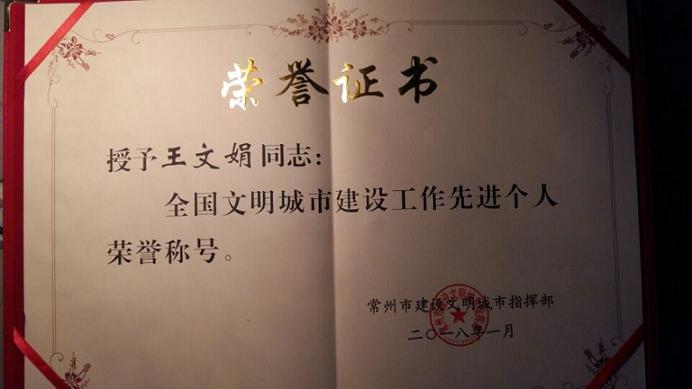 荣誉证书
授予王文娟同志：
全国文明城市建设工作先进个人
荣誉称号。
常州市建设文明城市指挥部
二〇一八年一月